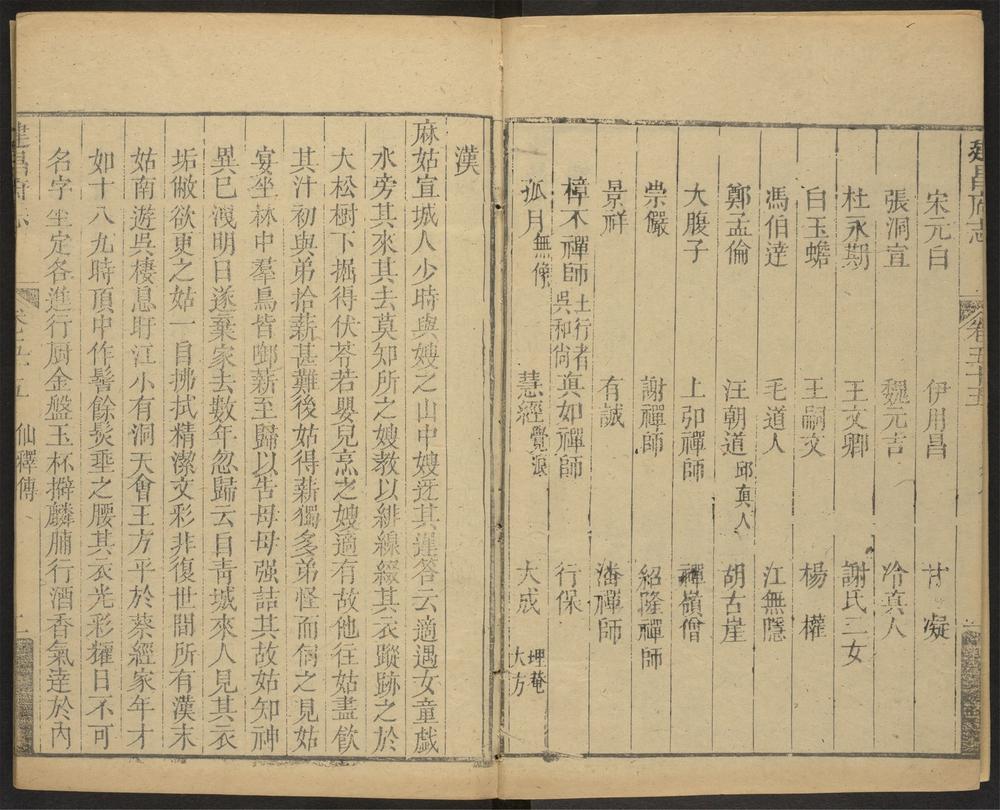 建昌府志
卷五十五
宋元白 伊用昌 甘凝
張洞宣 魏元吉 冷真人
杜永期 王文卿 謝氏二女
白玉蟾 王嗣文 楊權
馮伯達 毛道人 江無隱
鄭孟倫 汪朝道 邱真人 胡古崖
大腹子 上卭禪師 禪嶺僧
崇儼 謝禪師 紹隆禪師
景祥 有誠 潘禪師
樟不禪師 土行者 吳和尙 真如禪師 行保
孤月 無像 慧經 覺浪 大成 埋菴 大方
漢
麻姑宣城人少時與嫂之山中嫂迓其遲答云適遇女童戯
水旁其來其去莫知所之嫂教以緋線綴其衣蹤跡之於
大松樹下掘得伏苓若嬰兒烹之嫂適有故他往姑盡飮
其汁初與弟拾薪甚難後姑得薪獨多弟怪而伺之見姑
宴坐林中羣鳥皆啣薪至歸以告母母强詰其故姑知神
異已洩明日遂棄家去數年忽歸云自靑城來人見其衣
垢敝欲更之姑一自拂拭精潔文彩非復世間所有漢末
姑南遊吳棲息盱江小有洞天會王方平於蔡經家年才
如十八九時頂中作髻餘髮垂之腰其衣光彩耀日不可
名字坐定各進行厨金盤玉杯擗麟脯行酒香氣達於內
建昌府志
仙釋傳
二